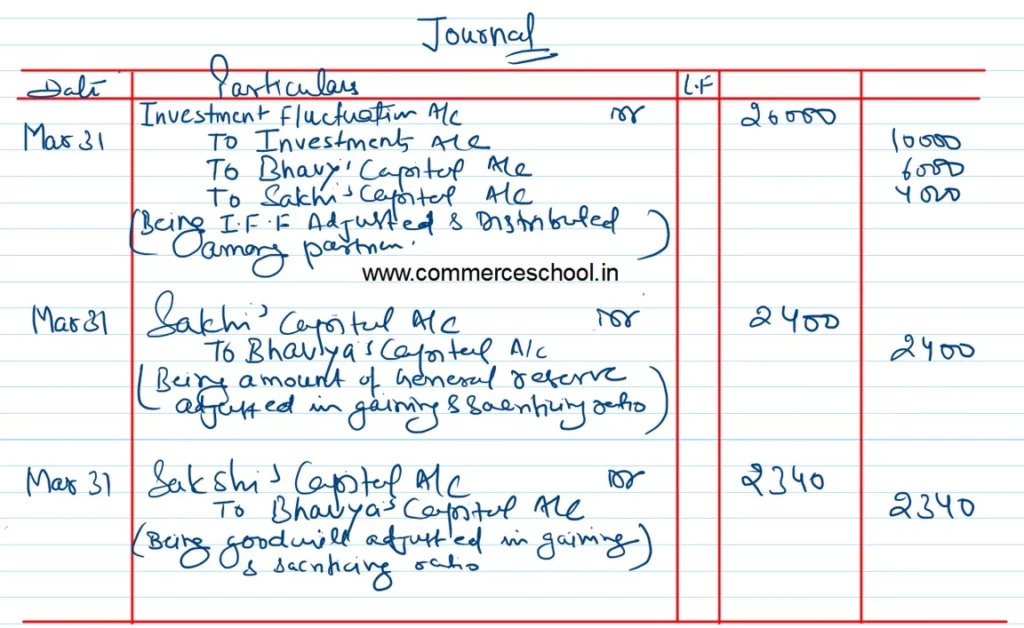 Journal
Date Particulars L.F
Investment Fluctuation A/c Dr 20000
Mar 31 To Investments A/c 10000
To Bhavy's Capital A/c 6000
To Sakhi's Capital A/c 4000
(Being I.F.F Adjusted & Distributed
among partner.)
www.commerceschool.in
Mar 31 Sakhi's Capital A/c Dr 2400
To Bhavya's Capital A/c 2400
(Being amount of General reserve
adjusted in gaining & Sacrificing ratio)
Mar 31 Sakshi's Capital A/c Dr 2340
To Bhavya's Capital A/c 2340
(Being goodwill adjusted in gaining
& sacrificing ratio)